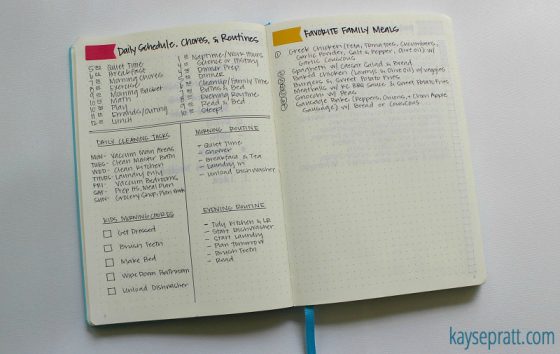 Daily Schedule, Chores, & Routines
5 Quiet Time
6 Breakfast
7 Morning Chores
8 Exercise
9 Morning Basket
10 Math
10 Play
11 Errands/Outing
12 Lunch
1 Naptime/Work Hours
Science or History
Dinner Prep
Dinner
Cleanup/Family Time
Baths & Bed
Evening Routine
Read & Bed
Sleep!
DAILY CLEANING TASKS
MON- Vacuum Main Areas
TUES- Clean Master Bath
WED- Clean Kitchen
THURS- Laundry Only
FRI- Vacuum Bedrooms
SAT- Prep Meal Plan
SUN- Grocery Shop, Plan
MORNING ROUTINE
- Quiet Time
- Shower
- Breakfast & Tea
- Laundry in
- Unload Dishwasher
KIDS MORNING CHORES
Get Dressed
Brush Teeth
Make Bed
Wipe Down Bathroom
Unload Dishwasher
EVENING ROUTINE
- Tidy Kitchen & LR
- Start Dishwasher
- Start Laundry
- Plan Tomorrow
- Brush Teeth
- Read
Favorite Family Meals
Greek Chicken (Feta, Tomatoes, Cucumbers,
Garlic Powder, Salt & Pepper, Olive Oil) w/
Garlic Couscous
Spaghetti w/ Caesar Salad & Bread
Baked Chicken (Lawry's & Olive Oil) w/ Veggies
Burgers & Sweet Potato Fries
Meatballs w/ KC BBQ Sauce & Sweet Potato Fries
Gnocchi w/ Peas
Sausage Bake (Peppers, Onions, + Chicken Apple
Sausage) w/ Bread or Couscous
kaysepratt.com